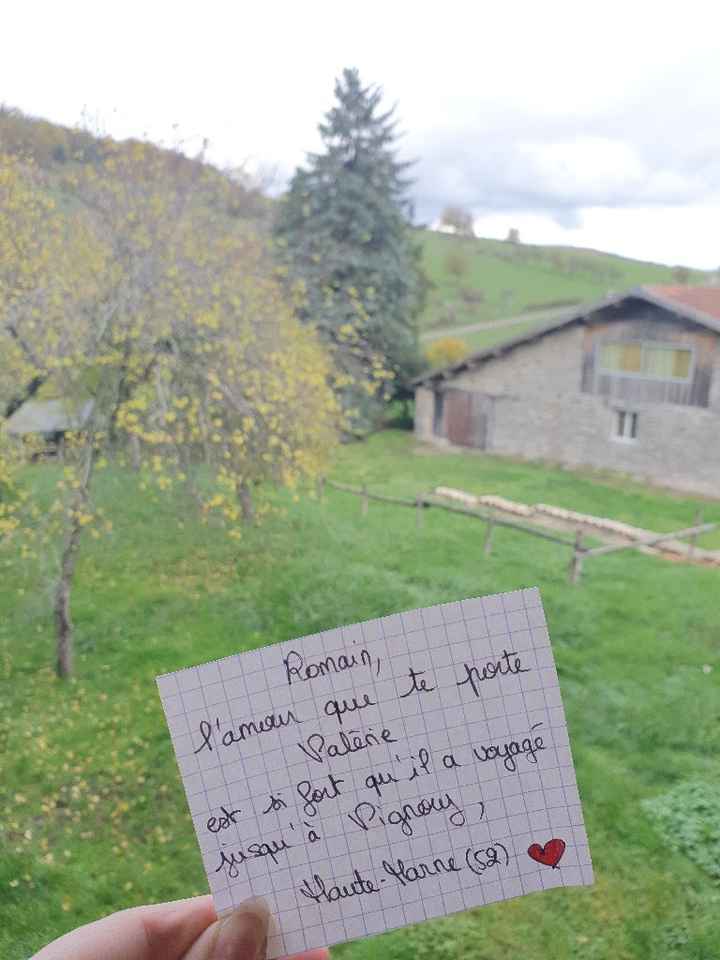 Romain,
l'amour que te porte
Valérie
est si fort qu'il a voyagé
jusqu'à Vignory,
Haute-Marne (52)